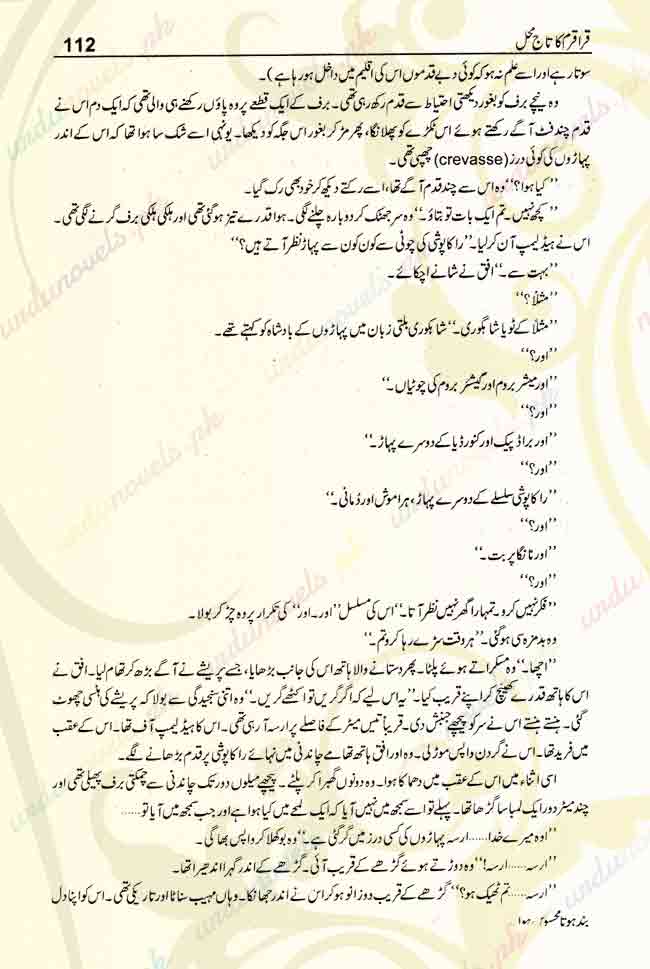 قراقرم کا تاج محل
112
سوتا رہے اور اسے علم نہ ہو کہ کوئی دبے قدموں اس کی اقلیم میں داخل ہو رہا ہے)۔
وہ نیچے برف کو بغور دیکھتی احتیاط سے قدم رکھ رہی تھی۔ برف کے ایک قطعے پر وہ پاؤں رکھنے ہی والی تھی کہ ایک دم اس نے
قدم چند فٹ آگے رکھتے ہوئے اس ٹکڑے کو پھلانگا، پھر مڑ کر بغور اس جگہ کو دیکھا۔ یونہی اسے شک سا ہوا تھا کہ اس کے اندر
پہاڑوں کی کوئی درز (crevasse) چھپی تھی۔
’’کیا ہوا؟‘‘ وہ اس سے چند قدم آگے تھا، اسے رکتے دیکھ کر خود بھی رک گیا۔
’’کچھ نہیں۔ تم ایک بات تو بتاؤ۔‘‘ وہ سر جھٹک کر دوبارہ چلنے لگی۔ ہوا قدرے تیز ہو گئی تھی اور ہلکی ہلکی برف گرنے لگی تھی۔
اس نے ہیڈ لیمپ آن کر لیا۔ ’’راکا پوشی کی چوٹی سے کون کون سے پہاڑ نظر آتے ہیں؟‘‘
’’بہت سے۔‘‘ افق نے شانے اچکائے۔
’’مثلاً؟‘‘
’’مثلاً کے ٹو یا شاہگوری۔‘‘ شاہگوری بلتی زبان میں پہاڑوں کے بادشاہ کو کہتے تھے۔
’’اور؟‘‘
’’اور میشر بروم اور گیشئر بروم کی چوٹیاں۔‘‘
’’اور؟‘‘
’’اور براڈ پیک اور کنورڈیا کے دوسرے پہاڑ۔‘‘
’’اور؟‘‘
’’راکا پوشی سلسلے کے دوسرے پہاڑ، ہراموش اور دُمانی۔‘‘
’’اور؟‘‘
’’اور نانگا پربت۔‘‘
’’اور؟‘‘
’’فکر نہیں کرو۔ تمہارا گھر نہیں نظر آتا۔‘‘ اس کی مسلسل ’’اور۔اور‘‘ کی تکرار پر وہ چڑ کر بولا۔
وہ بدمزہ سی ہو گئی۔ ’’ہر وقت سڑے رہا کرو تم۔‘‘
’’اچھا۔‘‘ وہ مسکراتے ہوئے پلٹا۔ پھر دستانے والا ہاتھ اس کی جانب بڑھایا، جسے پریشے نے آگے بڑھ کر تھام لیا۔ افق نے
اس کا ہاتھ قدرے کھینچ کر اپنے قریب کیا۔ ’’یہ اس لیے کہ اگر گریں تو اکٹھے گریں۔‘‘ وہ اتنی سنجیدگی سے بولا کہ پریشے کی ہنسی چھوٹ
گئی۔ ہنستے ہنستے اس نے سر کو پیچھے جنبش دی۔ قریباً تیس میٹر کے فاصلے پر ارسہ آ رہی تھی۔ اس کا ہیڈ لیمپ آف تھا۔ اس کے عقب
میں فرید تھا۔ اس نے گردن واپس موڑ لی۔ وہ اور افق ہاتھ تھامے چاندنی میں نہائے راکا پوشی پر قدم بڑھانے لگے۔
اسی اثناء میں اس کے عقب میں دھماکا ہوا۔ وہ دونوں گھبرا کر پلٹے۔ پیچھے میلوں دور تک چاندنی سے چمکتی برف پھیلی تھی اور
چند میٹر دور ایک لمبا سا گڑھا تھا۔ پہلے تو اسے سمجھ میں نہیں آیا کہ ایک لمحے میں کیا ہوا ہے اور جب سمجھ میں آیا تو......
’’اوہ میرے خدا...... ارسہ پہاڑوں کی کسی درز میں گر گئی ہے۔‘‘ وہ بوکھلا کر واپس بھاگی۔
’’ارسہ...... ارسہ!‘‘ وہ دوڑتے ہوئے گڑھے کے قریب آئی۔ گڑھے کے اندر گہرا اندھیرا تھا۔
’’ارسہ...... تم ٹھیک ہو؟‘‘ گڑھے کے قریب دوزانو ہو کر اس نے اندر جھانکا۔ وہاں مہیب سناٹا اور تاریکی تھی۔ اس کو اپنا دل
بند ہوتا محسوس ہوا۔
urdunovels.pk